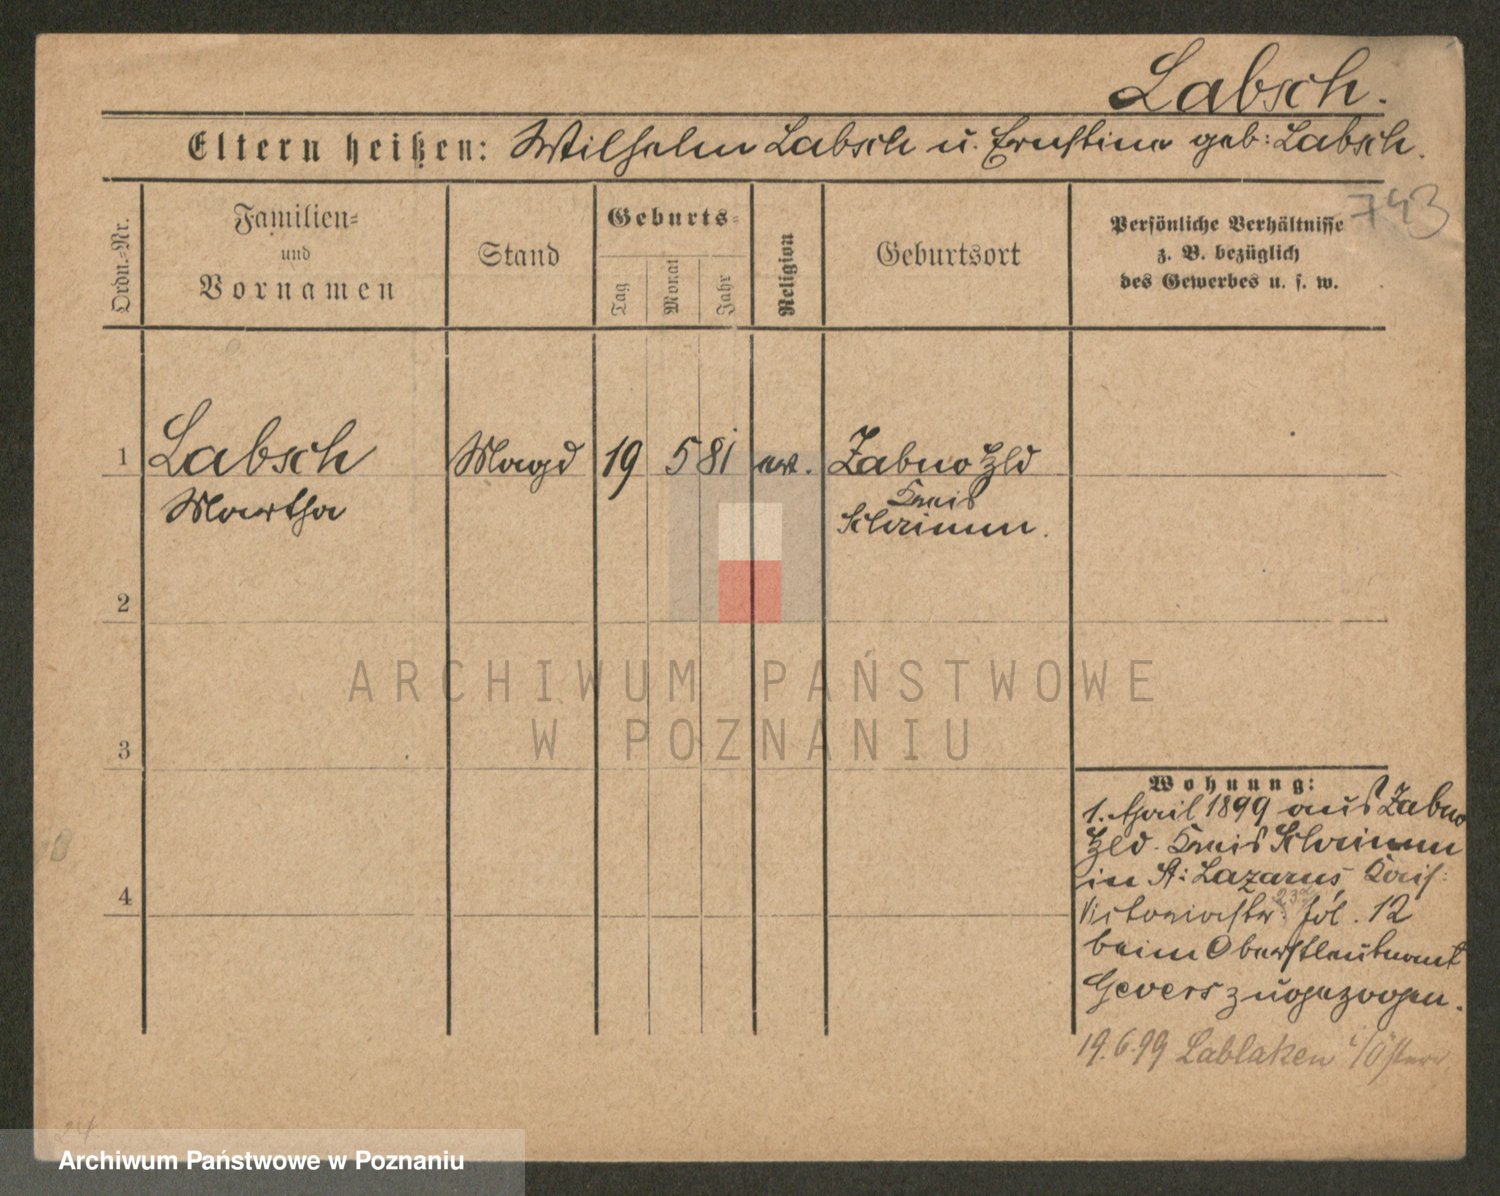 Labsch.
Eltern heißen: Wilhelm Labsch u. Ernstine geb: Labsch.
743
Ordn.-Nr.
Familien-
und
Vornamen
Stand
Geburts-
Tag
Monat
Jahr
Religion
Geburtsort
Persönliche Verhältnisse
z. B. bezüglich
des Gewerbes u. s. w.
1 Labsch Magd 19 5 81 ev. Zabno Hld
Martha Kreis
Schrimm.
2
3
4
ARCHIWUM PAŃSTWOWE
W POZNANIU
Wohnung:
1. April 1899 aus Zabno
Hld. Kreis Schrimm
in St: Lazarus, Kais:
Victoriastr. 12
beim Oberstleutnant
Gevers zugezogen.
19.6.99 Lablaken
24
Archiwum Państwowe w Poznaniu